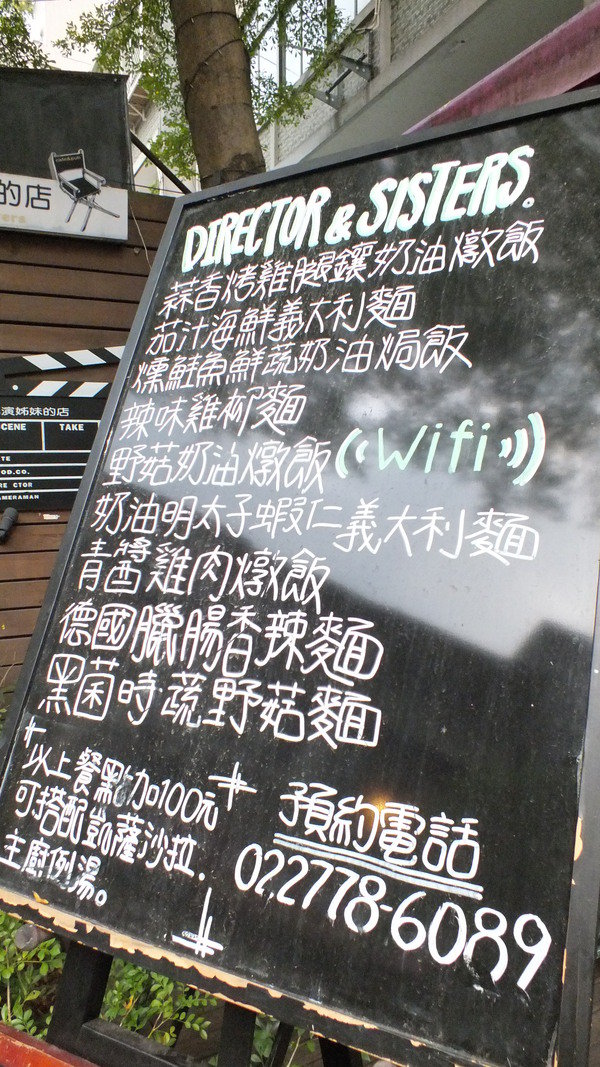 的店
DIRECTOR & SISTERS.
蒜香烤雞腿鑲奶油燉飯
茄汁海鮮義大利麵
燻鮭魚鮮蔬奶油焗飯
辣味雞柳麵
野菇奶油燉飯 (Wifi)
奶油明太子蝦仁義大利麵
青醬雞肉燉飯
德國臘腸香辣麵
黑菌時蔬野菇麵
以上餐點加100元
可搭配凱薩沙拉.
主廚例湯。
預約電話
02.2778-6089
演姊妹的店
SCENE TAKE